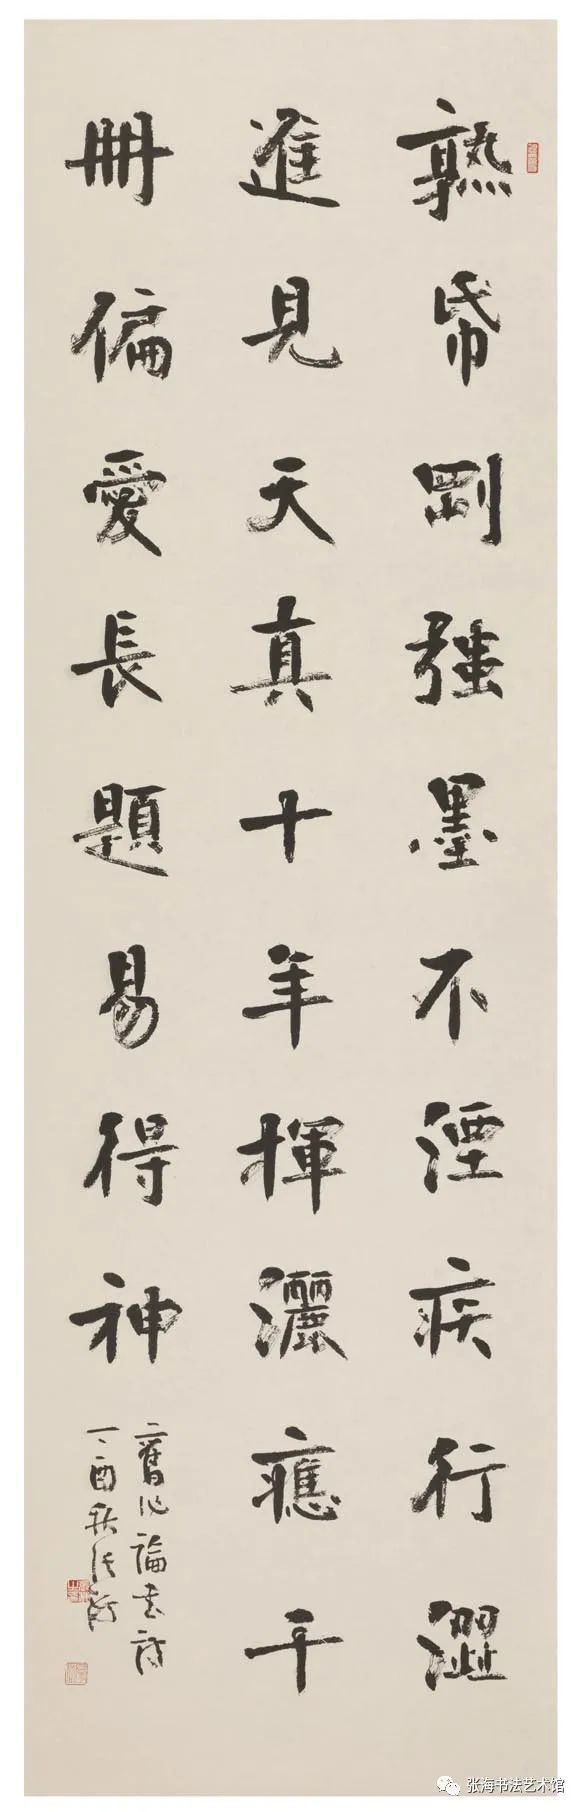 熟帋剛強墨不湮疾行澀
進見天真十年揮灑應千
冊偏愛長題易得神
舊作論書詩
丁酉秋張海
张海书法艺术馆